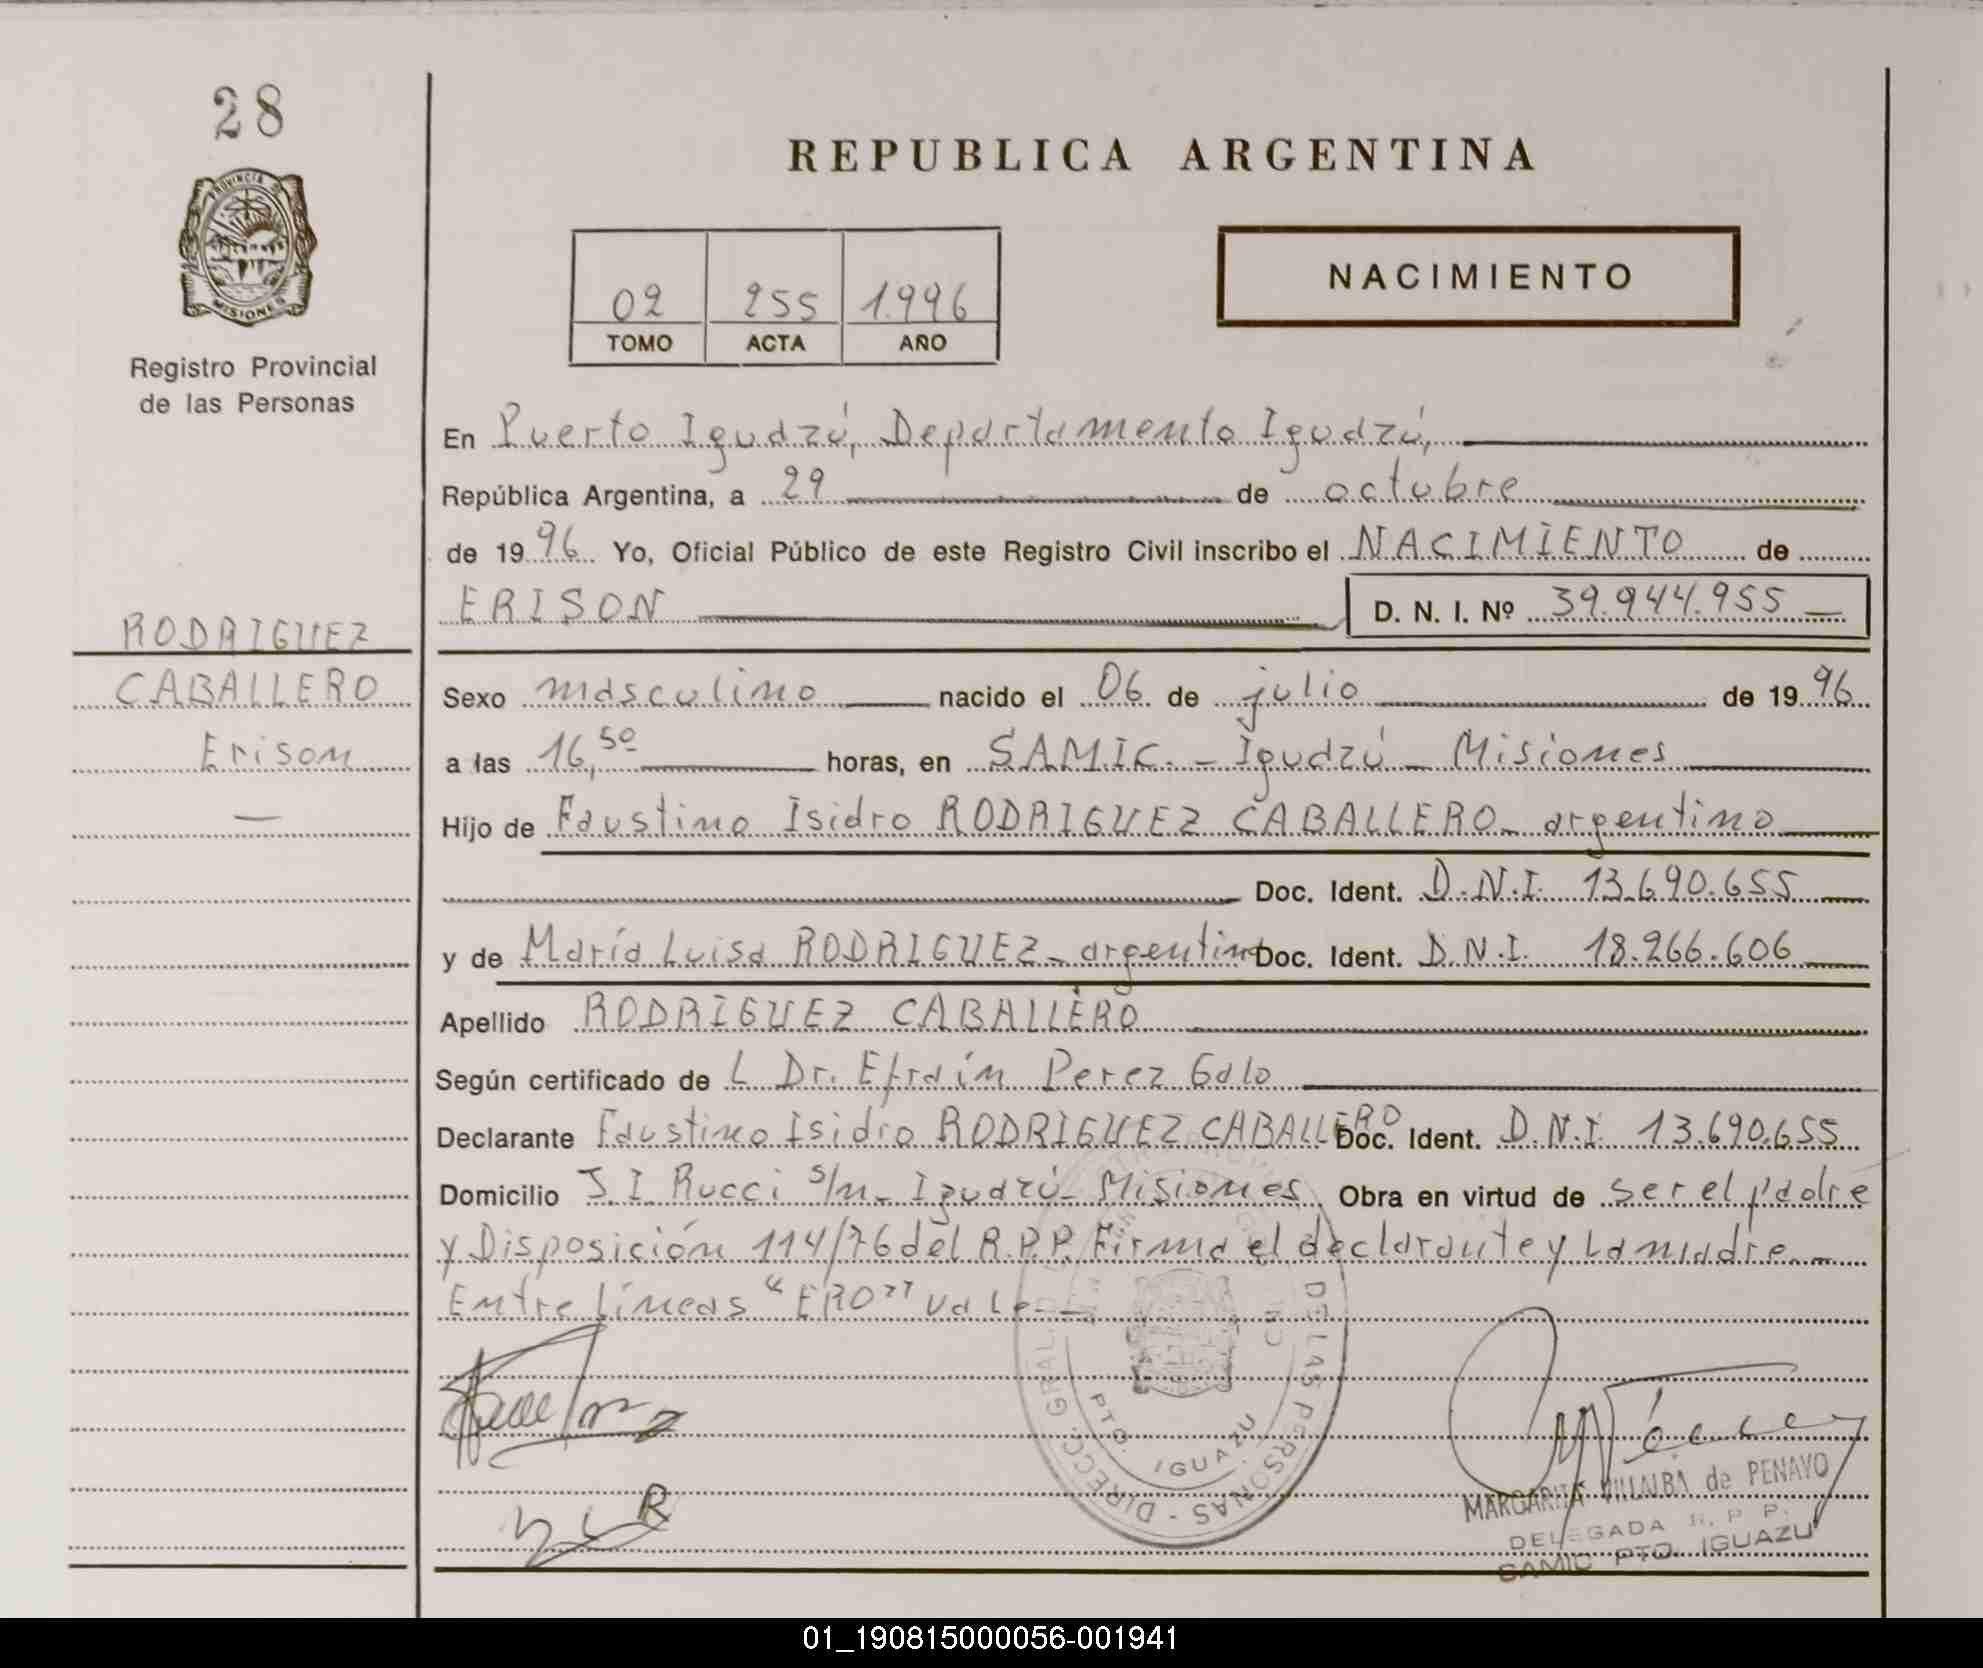 28
PROVINCIA DE
MISIONES
Registro Provincial
de las Personas
RODRIGUEZ
CABALLERO
Erison
REPUBLICA ARGENTINA
02 255 1.996
TOMO ACTA AÑO
NACIMIENTO
En Puerto Iguazú, Departamento Iguazú,
República Argentina, a 29 de octubre
de 1996 Yo, Oficial Público de este Registro Civil inscribo el NACIMIENTO de
ERISON D. N. I. Nº 39.944.955
Sexo masculino nacido el 06 de julio de 1996
a las 16,50 horas, en SAMIC. - Iguazú - Misiones
Hijo de Faustino Isidro RODRIGUEZ CABALLERO - argentino
Doc. Ident. D.N.I. 13.690.655
y de María Luisa RODRIGUEZ - argentina Doc. Ident. D.N.I. 18.266.606
Apellido RODRIGUEZ CABALLERO
Según certificado de L Dr. Efraín Perez Galo
Declarante Faustino Isidro RODRIGUEZ CABALLERO Doc. Ident. D.N.I 13.690.655
Domicilio J.I. Rucci s/n - Iguazú - Misiones Obra en virtud de ser el padre
y Disposición 114/76 del R.P.P. Firma el declarante y la madre. -
Entre líneas "ERO" vale -
DE LAS PERSONAS - DIRECC. GRAL.
PTO. IGUAZU
MARGARITA VILLALBA de PENAYO
DELEGADA R. P. P.
SAMIC PTO. IGUAZU
01_190815000056-001941